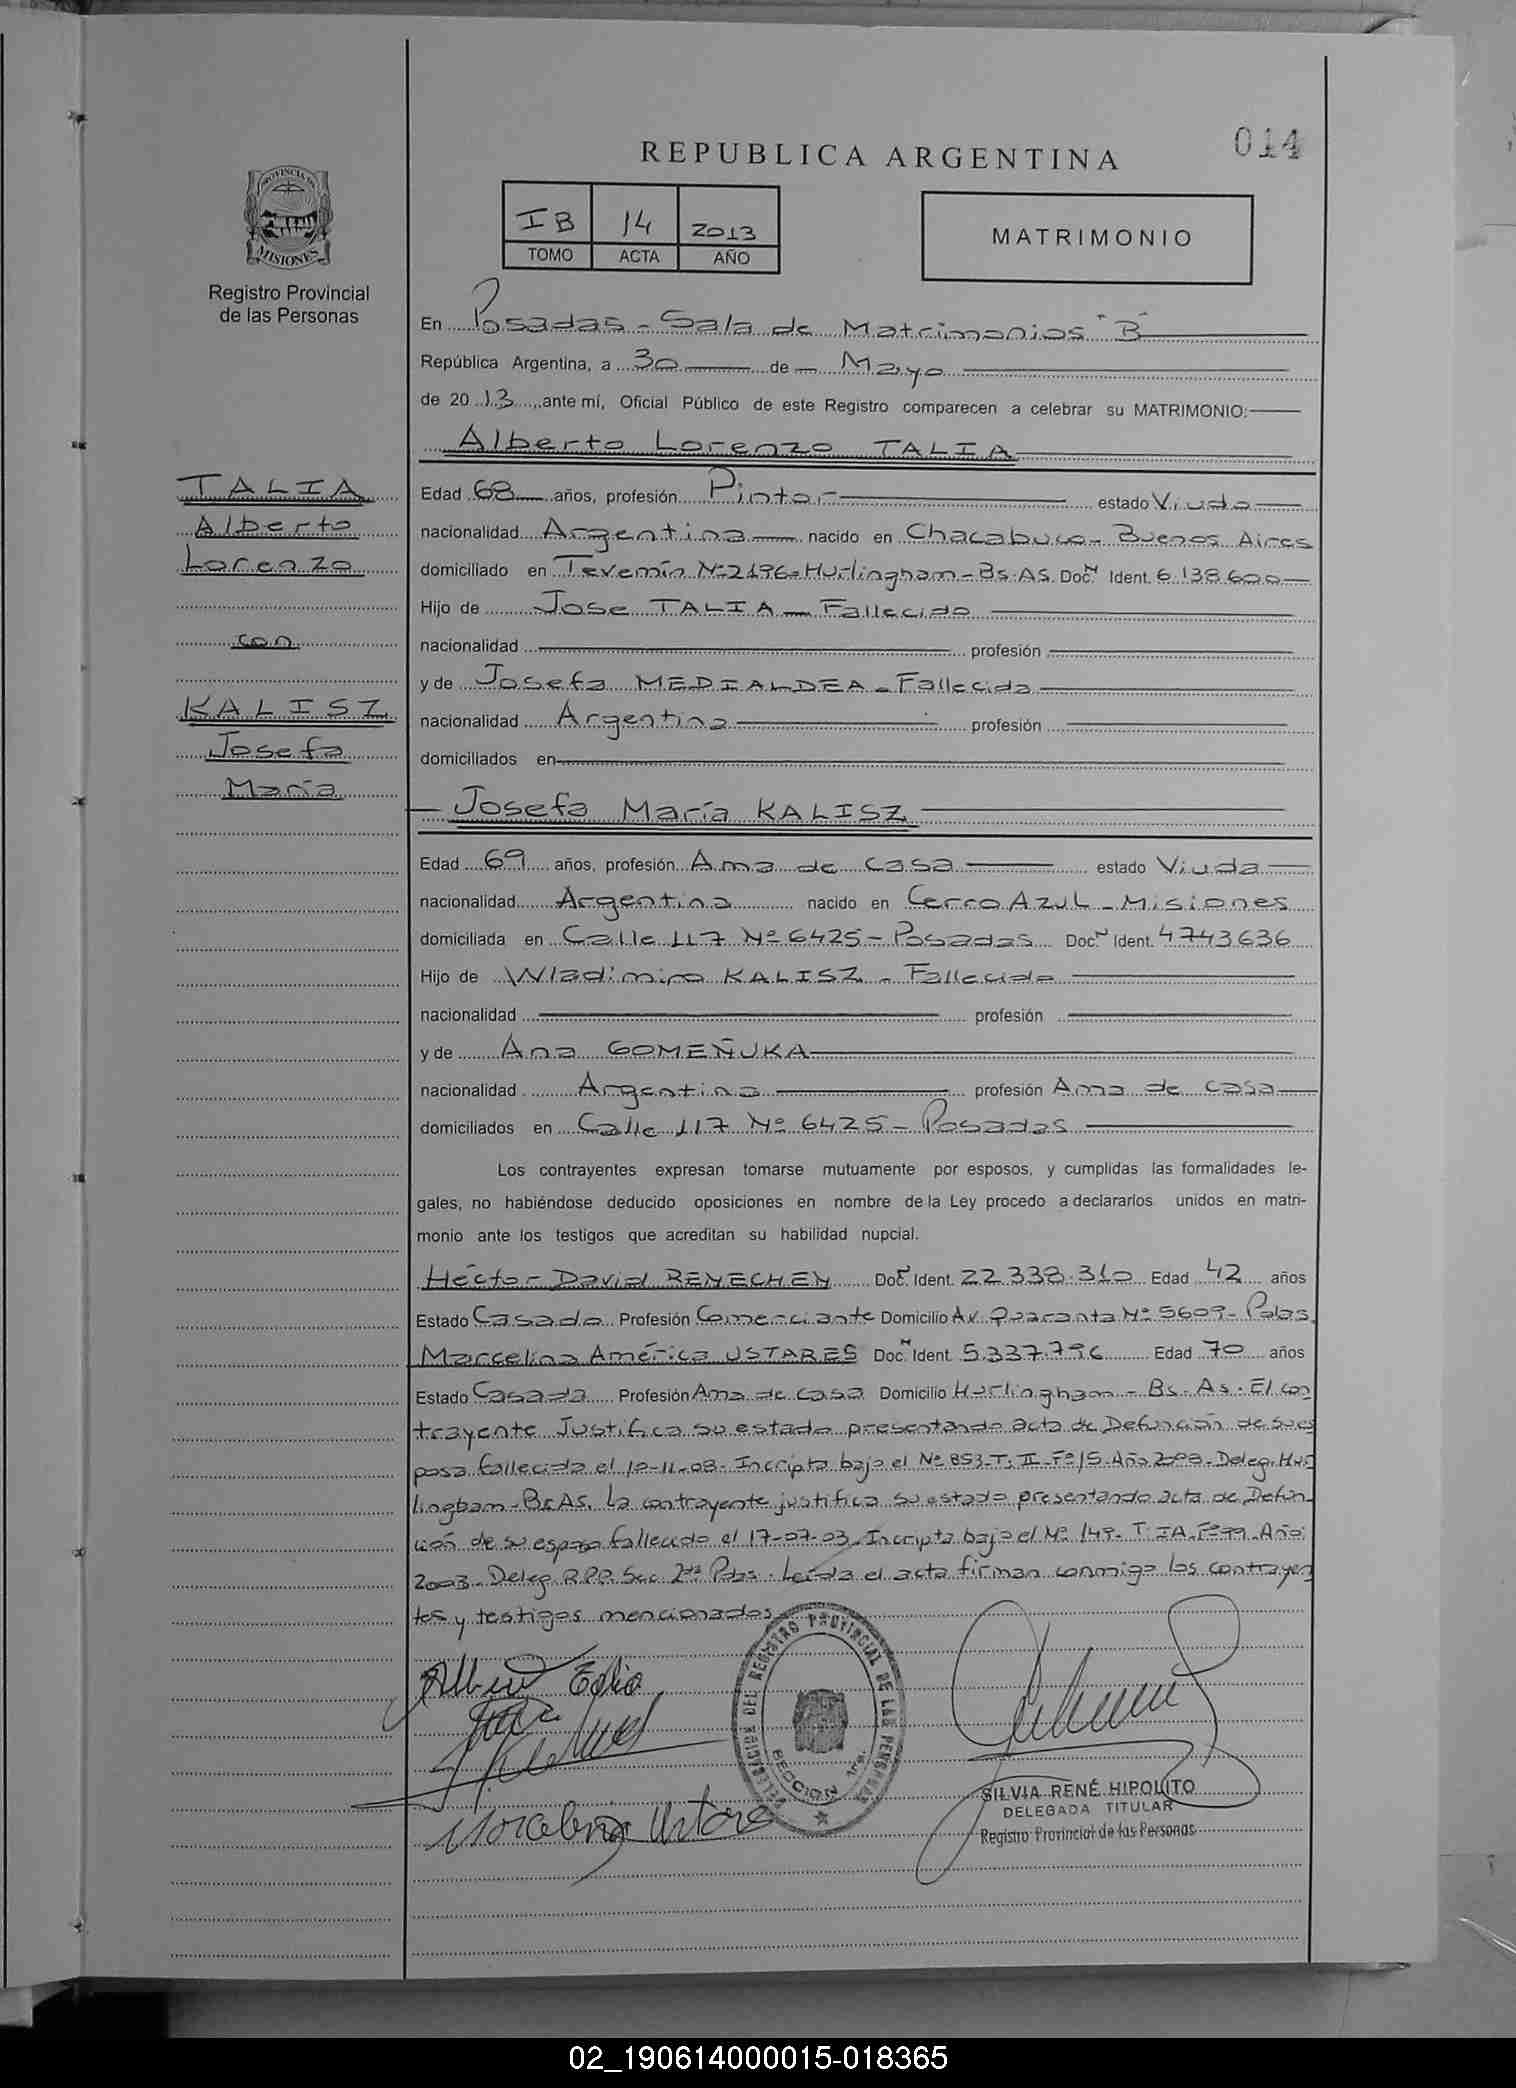 014
REPUBLICA ARGENTINA
PROVINCIA DE
MISIONES
Registro Provincial
de las Personas
IB 14 2013
TOMO ACTA AÑO
MATRIMONIO
En Posadas - Sala de Matrimonios "B"
República Argentina, a 30 de Mayo
de 2013, ante mí, Oficial Público de este Registro comparecen a celebrar su MATRIMONIO:
Alberto Lorenzo TALIA
TALIA
Alberto
Lorenzo
con
KALISZ
Josefa
María
Edad 68 años, profesión Pintor estado Viudo
nacionalidad Argentina nacido en Chacabuco - Buenos Aires
domiciliado en Tevemín Nº 2196 - Hurlingham - Bs. As. Doc. Ident. 6.138.600
Hijo de Jose TALIA - Fallecido
nacionalidad profesión
y de Josefa MEDIALDEA - Fallecida
nacionalidad Argentina profesión
domiciliados en
Josefa María KALISZ
Edad 69 años, profesión Ama de casa estado Viuda
nacionalidad Argentina nacido en Cerro Azul - Misiones
domiciliada en Calle 117 Nº 6425 - Posadas Doc. Ident. 4743636
Hijo de Wladimiro KALISZ - Fallecido
nacionalidad profesión
y de Ana GOMEÑUKA
nacionalidad Argentina profesión Ama de casa
domiciliados en Calle 117 Nº 6425 - Posadas
Los contrayentes expresan tomarse mutuamente por esposos, y cumplidas las formalidades le-
gales, no habiéndose deducido oposiciones en nombre de la Ley procedo a declararlos unidos en matri-
monio ante los testigos que acreditan su habilidad nupcial.
Héctor David Doc. Ident. 22.338.310 Edad 42 años
Estado Casado Profesión Comerciante Domicilio Av. Quaranta Nº 5609 - Pdas.
Marcelina América USTARES Doc. Ident. 5.337.796 Edad 70 años
Estado Casada Profesión Ama de casa Domicilio Hurlingham - Bs. As. El con
trayente Justifica su estado presentando acta de Defunción de su es
posa fallecida el 10-11-08. Incripta bajo el Nº 853 - T: II - Fº 15 Año Deleg. Hur
lingham - Bs As. La contrayente justifica su estado presentando acta de Defun
ción de su esposo fallecido el 17-07-03. Incripta bajo el Nº 149 - T: IA - Fº 99 - Año:
2003 - Deleg. R.P.P. Sec. 2da Pdas. Leída el acta firman conmigo los contrayen
tes y testigos mencionados
DELEGACION DEL REGISTRO PROVINCIAL DE LAS PERSONAS
SECCION 1ra.
Marcelina Ustares
SILVIA RENÉ HIPOLITO
DELEGADA TITULAR
Registro Provincial de las Personas
02_190614000015-018365